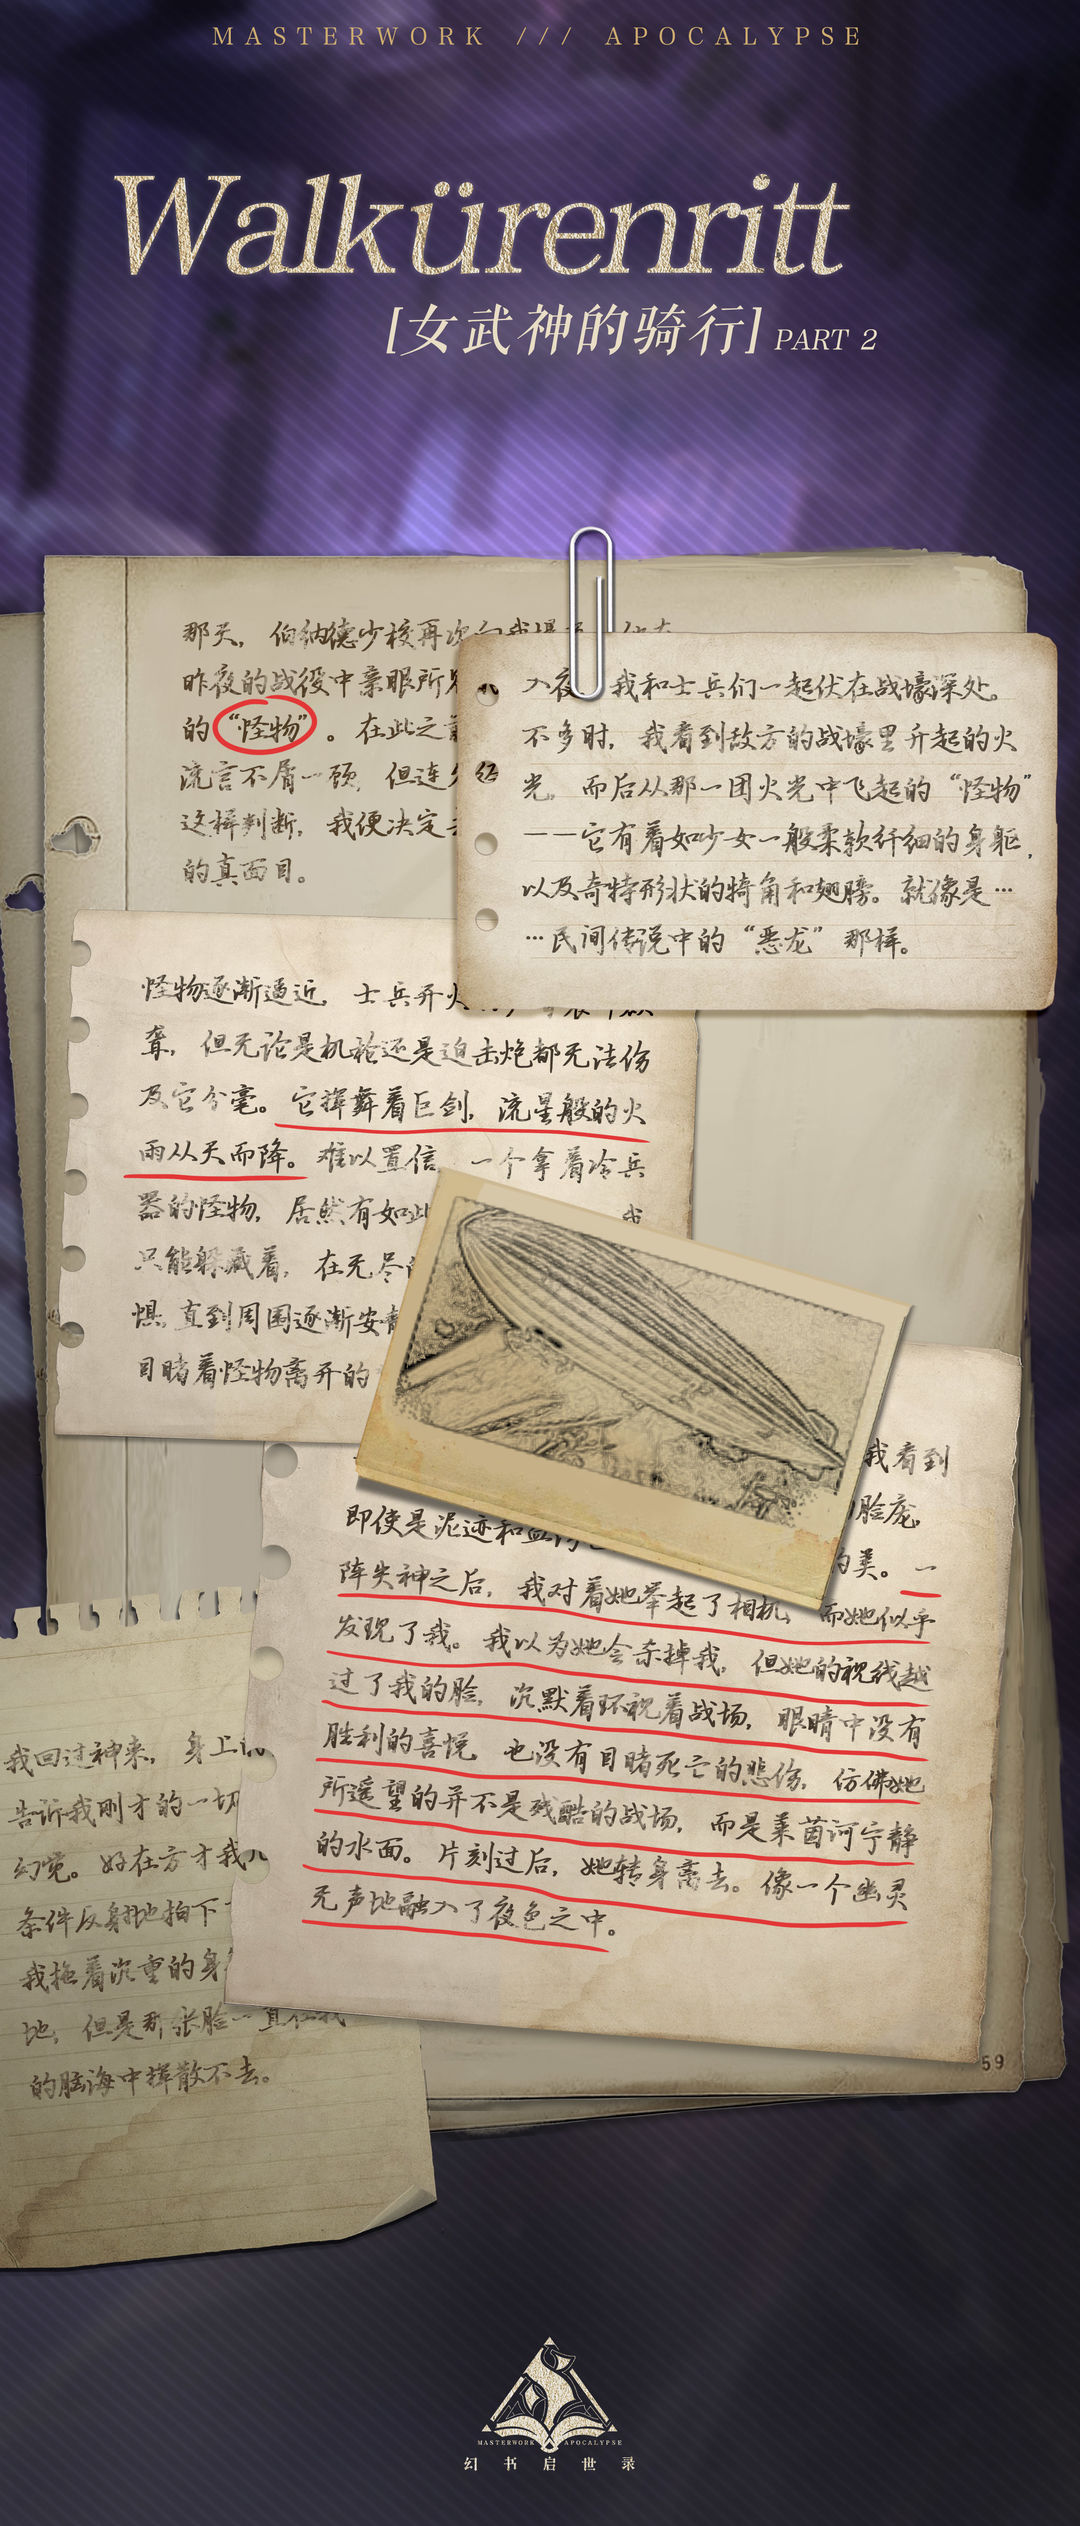 MASTERWORK /// APOCALYPSE
Walkürenritt
[女武神的骑行] PART 2
那天，伯纳德少校再次向我
昨夜的战役中亲眼所见
的“怪物”。在此之前
流言不屑一顾，但连
这样判断，我便决定去
的真面目。
入夜，我和士兵们一起伏在战壕深处。
不多时，我看到敌方的战壕里升起的火
光，而后从那一团火光中飞起的“怪物”
——它有着如少女一般柔软纤细的身躯，
以及奇特形状的犄角和翅膀。就像是…
…民间传说中的“恶龙”那样。
怪物逐渐逼近，士兵开火
聋，但无论是机枪还是迫击炮都无法伤
及它分毫。它挥舞着巨剑，流星般的火
雨从天而降。难以置信，一个拿着冷兵
器的怪物，居然有如此 我
只能躲藏着，在无尽
惧，直到周围逐渐安静
目睹着怪物离开的
我看到
即使是泥迹和血 脸庞，
的美。一
阵失神之后，我对着她举起了相机，而她似乎
发现了我。我以为她会杀掉我，但她的视线越
过了我的脸，沉默着环视着战场，眼睛中没有
胜利的喜悦，也没有目睹死亡的悲伤，仿佛她
所遥望的并不是残酷的战场，而是莱茵河宁静
的水面。片刻过后，她转身离去。像一个幽灵
无声地融入了夜色之中。
我回过神来，身上
告诉我刚才的一切
幻觉。好在方才我
条件反射地拍下
我拖着沉重的身
地，但是那张脸一直在我
的脑海中挥散不去。
59
MASTERWORK APOCALYPSE
幻书启世录